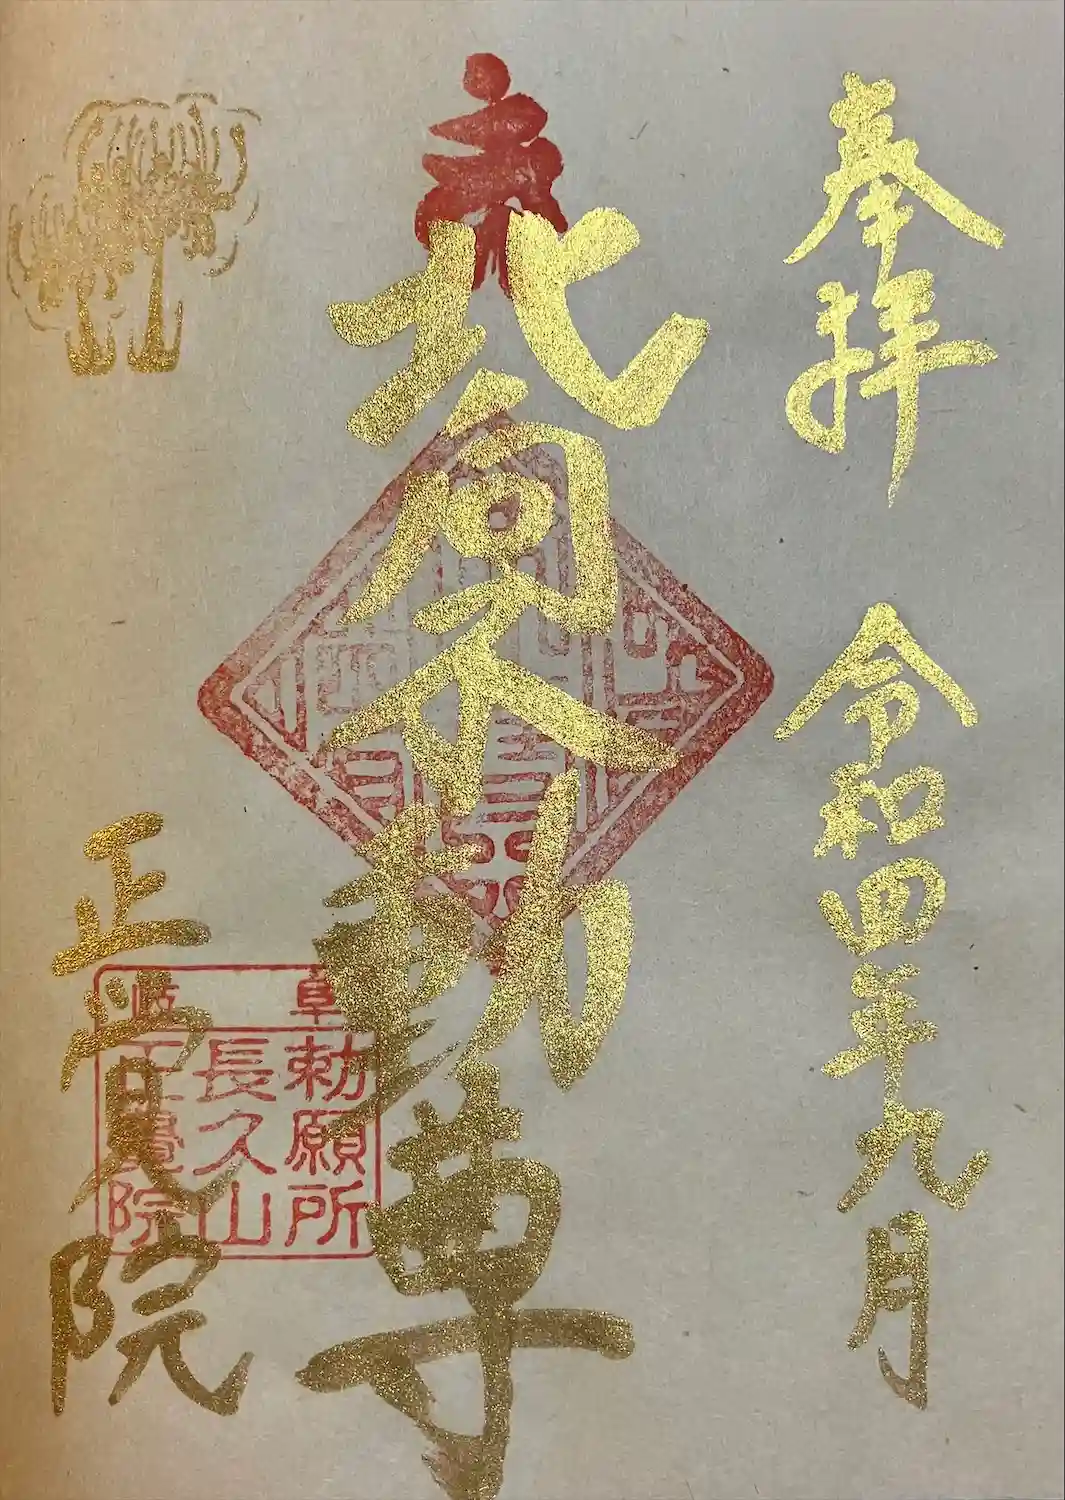 奉拝
令和四年九月
北向不動尊
勅願所
長久山
正覺院
正覚院